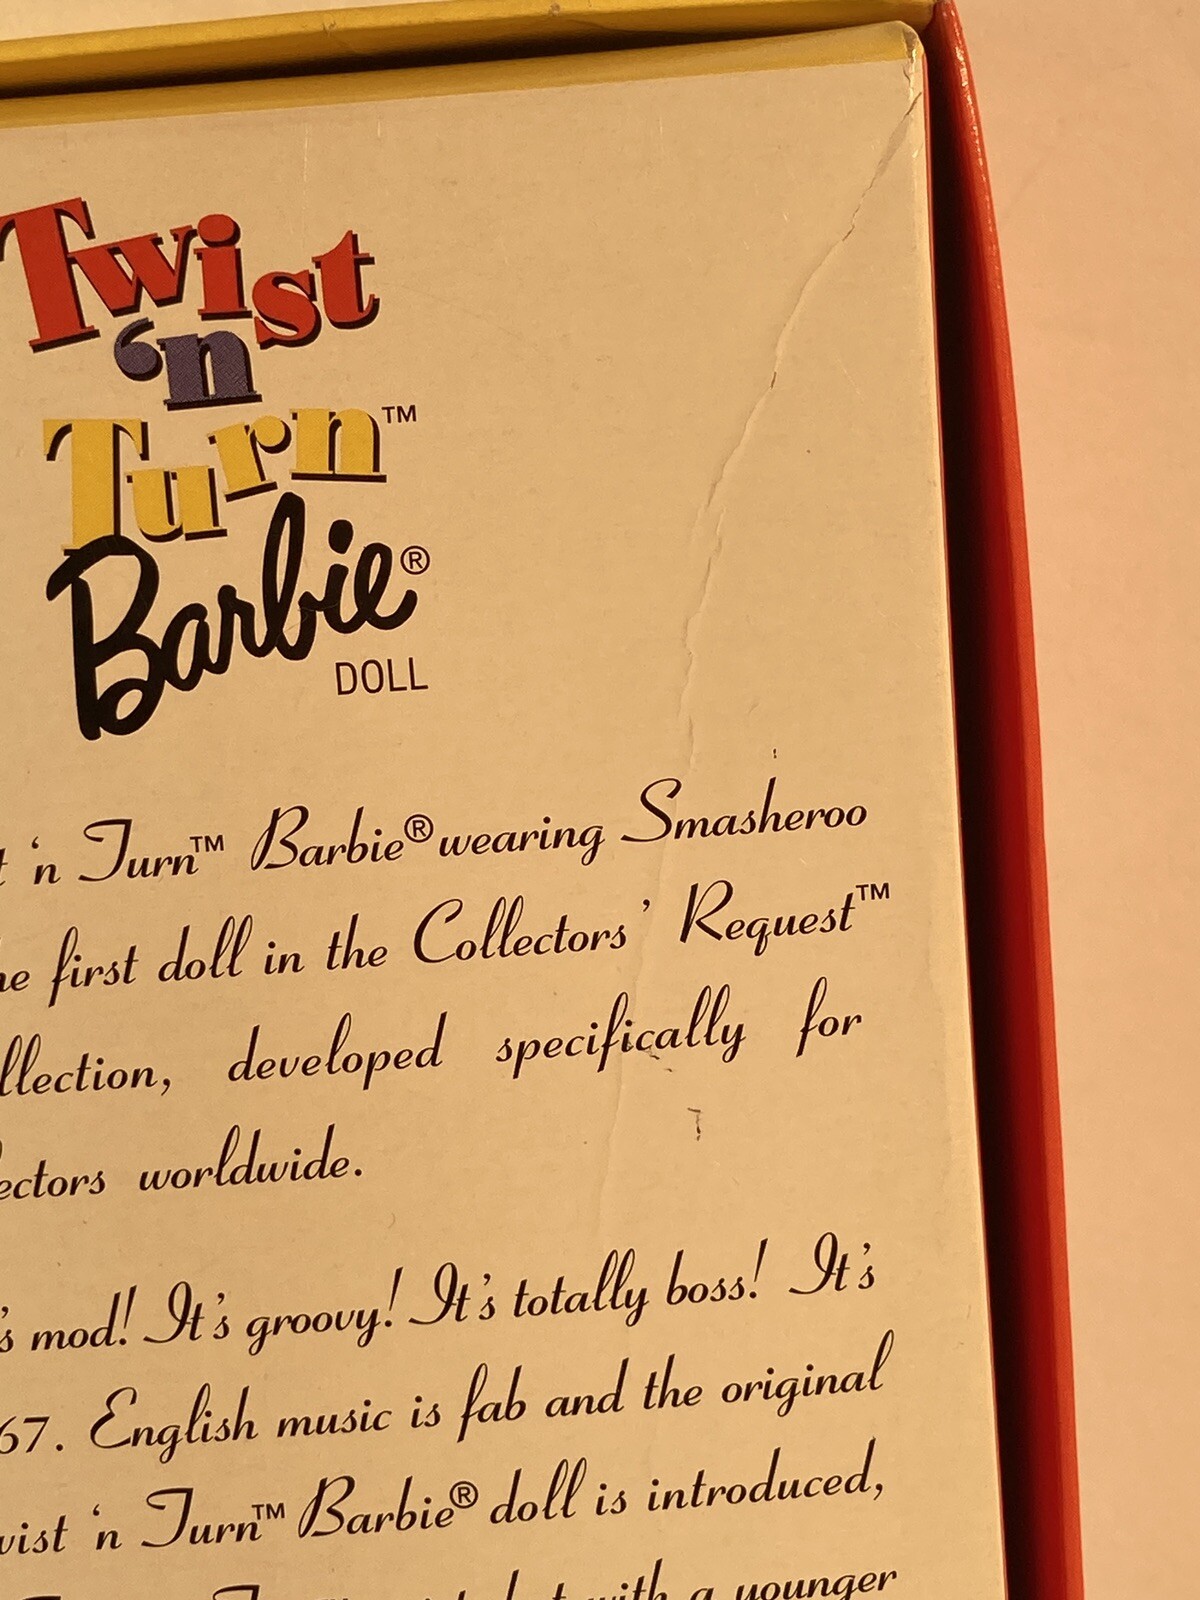 Twist
‘n
Turn™
Barbie®
DOLL
‘n Turn™ Barbie® wearing Smasheroo
first doll in the Collectors’ Request™
llection, developed specifically for
ectors worldwide.
’s mod! It’s groovy! It’s totally boss! It’s
67. English music is fab and the original
wist ‘n Turn™ Barbie® doll is introduced,
with a younger